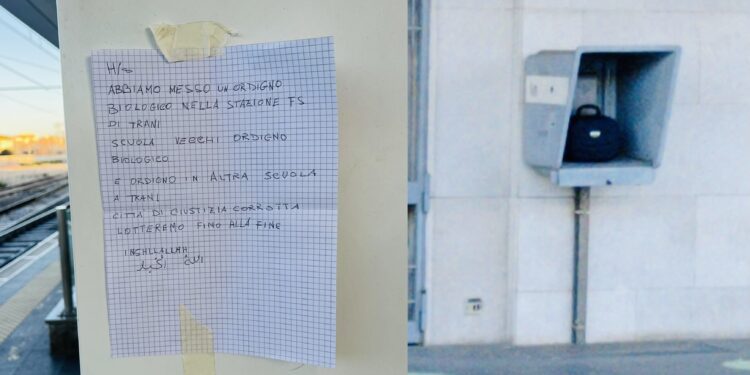 H/S
ABBIAMO MESSO UN ORDIGNO
BIOLOGICO NELLA STAZIONE FS
DI TRANI
SCUOLA VECCHI ORDIGNO
BIOLOGICO
E ORDIGNO IN ALTRA SCUOLA
A TRANI
CITTÀ DI GIUSTIZIA CORROTTA
LOTTEREMO FINO ALLA FINE
INSHLLALLAH
الله أكبار